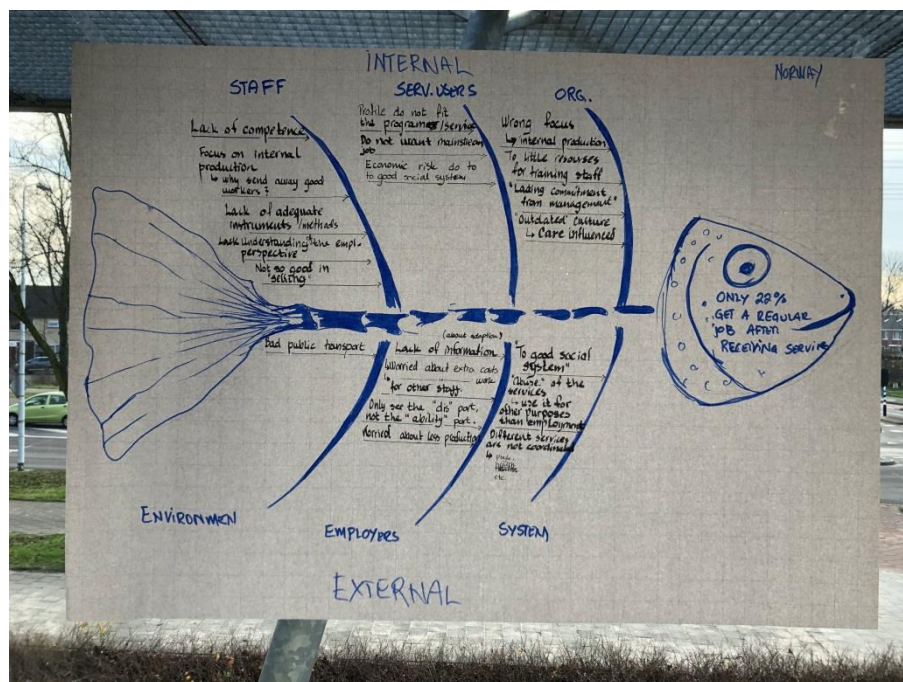 INTERNAL
NORWAY
STAFF
Lack of competence
Focus on internal
production
↳ why send away good
workers?
Lack of adequate
instruments/methods
Lack understanding the empl.
perspective
Not so good in
"selling"
SERV. USERS
Profile do not fit
the program/service
Do not want mainstream
job
Economic risk do to
to good social system
ORG.
Wrong focus
↳ internal production
To little resourses
for training staff
"Lacking commitment
from management"
"Outdated" culture
↳ Care influenced
ONLY 22%
GET A REGULAR
JOB AFTER
RECEIVING SERVICE
Bad public transport
ENVIRONMEN
(about adaption)
Lack of information
Worried about extra costs
↳ work
for other staff.
Only see the "dis" part,
not the "ability" part.
Worried about less production
EMPLOYERS
"To good social
system"
"Abuse" of the
services
↳ use it for
other purposes
than employment
Different services
are not coordined
↳
etc.
SYSTEM
EXTERNAL